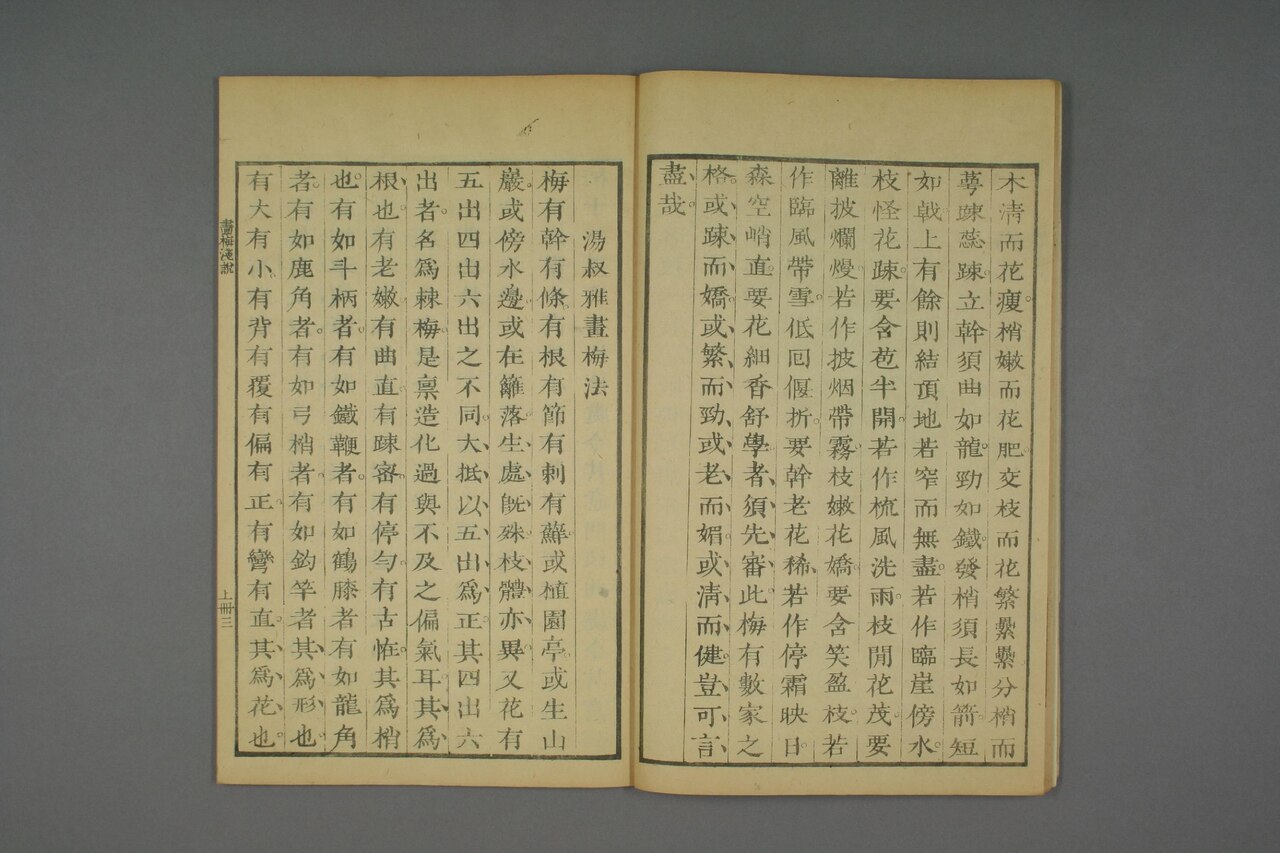 木清而花瘦。梢嫩而花肥。交枝而花繁纍纍。分梢而
萼疎蕊疎。立幹須曲如龍。勁如鐵。發梢須長如箭。短
如戟。上有餘則結頂。地若窄而無盡。若作臨崖傍水。
枝怪花疎。要含苞半開。若作梳風洗雨。枝閒花茂。要
離披爛熳。若作披烟帶霧。枝嫩花嬌。要含笑盈枝。若
作臨風帶雪。低回偃折。要幹老花稀。若作停霜映日。
森空峭直。要花細香舒。學者須先審此。梅有數家之
格。或疎而嬌。或繁而勁。或老而媚。或清而健。豈可言
盡哉。
湯叔雅畫梅法
梅有幹有條。有根有節。有刺有蘚。或植園亭。或生山
巖。或傍水邊。或在籬落。生處旣殊。枝體亦異。又花有
五出四出六出之不同。大抵以五出爲正。其四出六
出者。名爲棘梅。是禀造化過與不及之偏氣耳。其爲
根也。有老嫩。有曲直。有疎密。有停勻。有古怪。其爲梢
也。有如斗柄者。有如鐵鞭者。有如鶴膝者。有如龍角
者。有如鹿角者。有如弓梢者。有如釣竿者。其爲形也。
有大有小。有背有覆。有偏有正。有彎有直。其爲花也。
畫梅淺說
上冊三